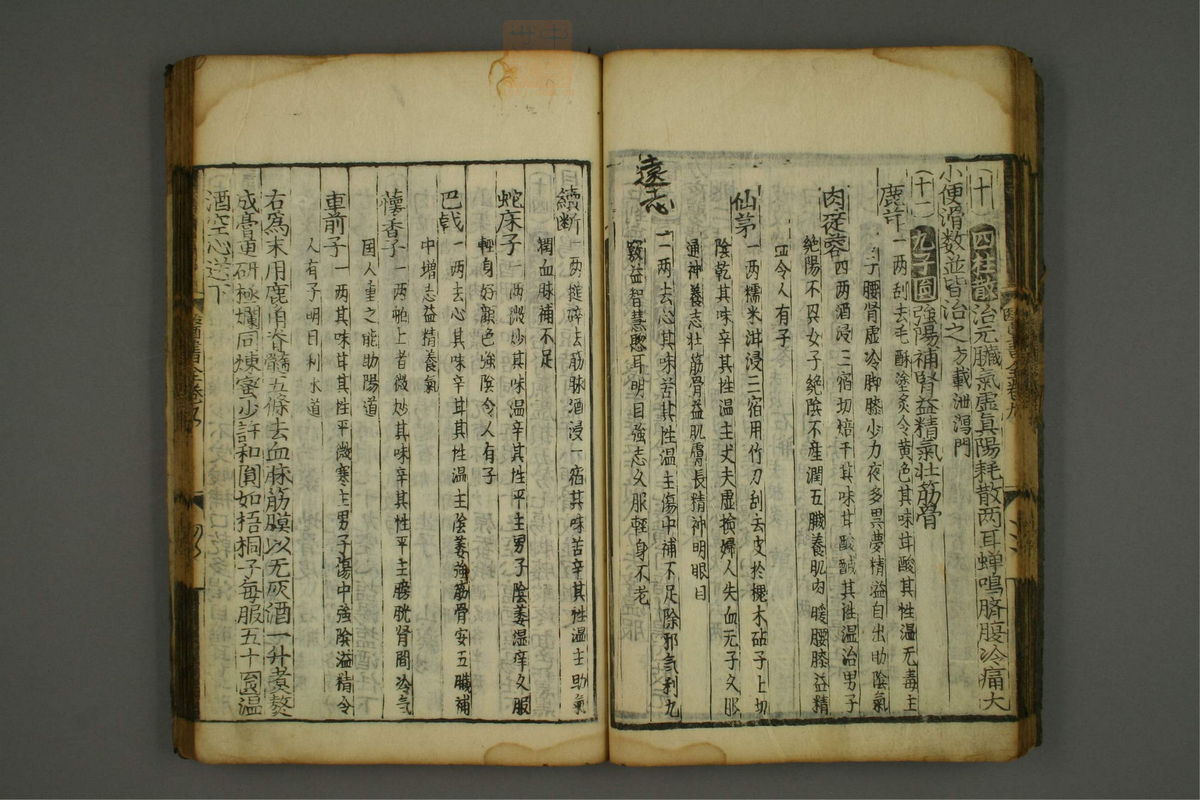 (十)四柱散治元臓氣虛真陽耗散两耳蟬鳴臍腹冷痛大
小便滑数並皆治之方載泄瀉門
(十一)九子圓強陽補腎益精氣壮筋骨
鹿茸一两刮去毛酥塗炙令黄色其味甘酸其性温无毒主
男子腰腎虛冷脚膝少力夜多異夢精益自出助陰氣
肉従蓉四两酒浸三宿切焙干其味甘酸鹹其性温治男子
絶陽不興女子絶陰不産潤五臓養肌肉暖腰膝益精
氣令人有子
仙茅一两糯米泔浸三宿用竹刀刮去皮於槐木砧子上切
陰乾其味辛其性温主丈夫虛損婦人失血无子久服
通神養志壮筋骨益肌膚長精神明眼目
遠志二两去心其味苦其性温主傷中補不足除邪氣利九
竅益智慧聰耳明目強志久服軽身不老
續断一两搥碎去筋脉酒浸一宿其味苦辛其性温主助氣
潤血脉補不足
蛇床子一两微炒其味温辛其性平主男子陰萎湿痒久服
輕身好顔色強陰令人有子
巴戟一两去心其味辛甘其性温主陰萎強筋骨安五臓補
中増志益精養氣
懐香子一两舶上者微炒其味辛其性平主膀胱肾間冷氣
国人重之能助陽道
車前子一两其味甘其性平微寒主男子傷中強陰溢精令
人有子明目利水道
右為末用鹿角脊髓五條去血脉筋膜以无灰酒一升煮熬
成膏更研極爛同煉蜜少許和圓如梧桐子毎服五十圓温
酒空心送下